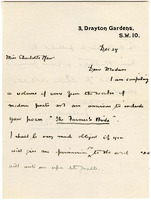 3, Drayton Gardens,
S.W.10.
Dec 29
Miss Charlotte Mew
Dear Madam
I am compiling
a volume of verse from the works of
modern poets and am anxious to include
your poem "The Farmer's Bride".
I shall be very much obliged if you
will give me permission to use it